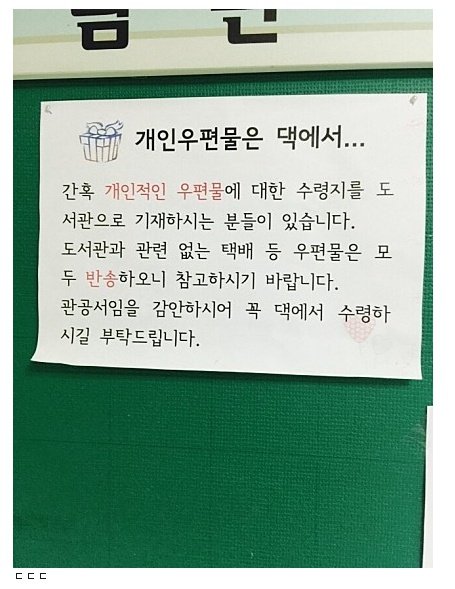 개인우편물은 댁에서...
간혹 개인적인 우편물에 대한 수령지를 도
서관으로 기재하시는 분들이 있습니다.
도서관과 관련 없는 택배 등 우편물은 모
두 반송하오니 참고하시기 바랍니다.
관공서임을 감안하시어 꼭 댁에서 수령하
시길 부탁드립니다.
ㄷㄷㄷ